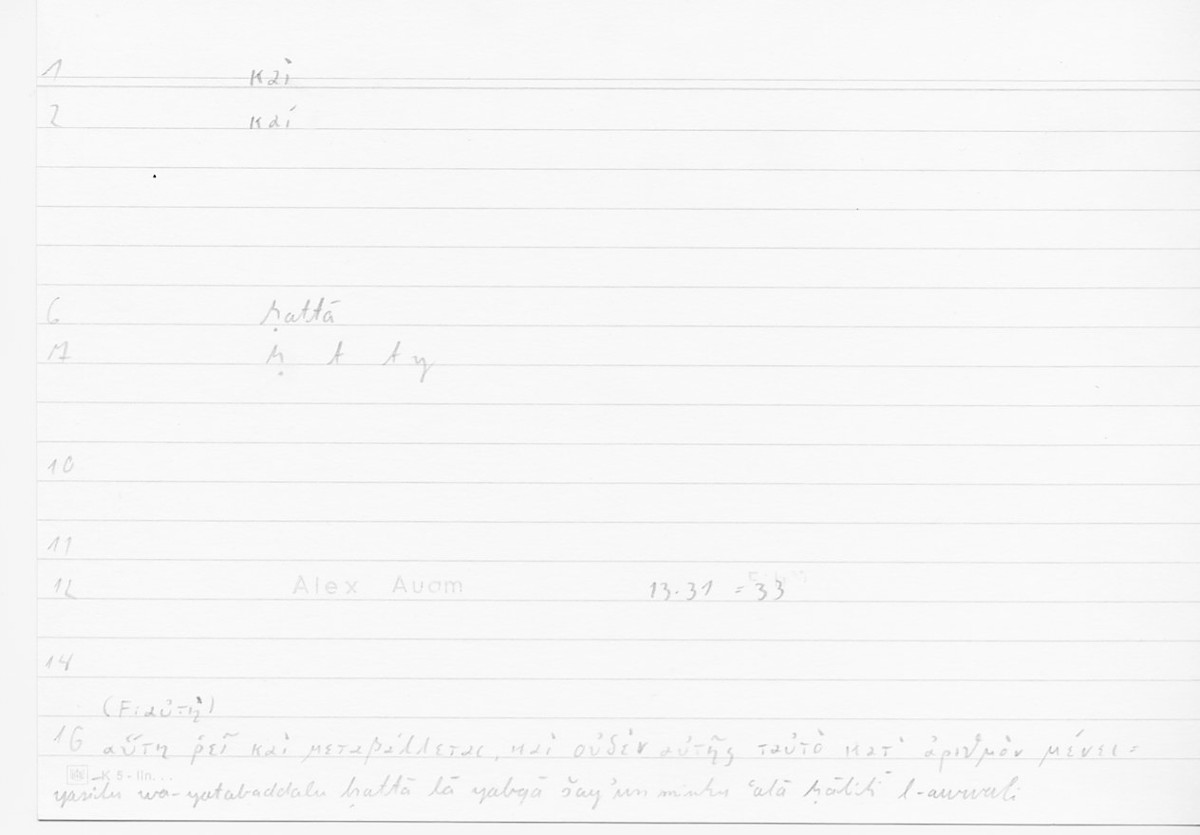 1 καὶ
2 καί
6 ḥattā
7 ḥ t t y
10
11
12 Alex Auom 13.31 = 33
14
(F: αὐτὴ)
16 αὕτη ῥεῖ καὶ μεταβάλλεται, καὶ οὐδὲν αὐτῆς ταὐτὸ κατ' ἀριθμὸν μένει =
K 5 - lin...
yasīlu wa-yatabaddalu ḥattā lā yabqā šay'un minhu ʿalā ḥālihī l-awwali